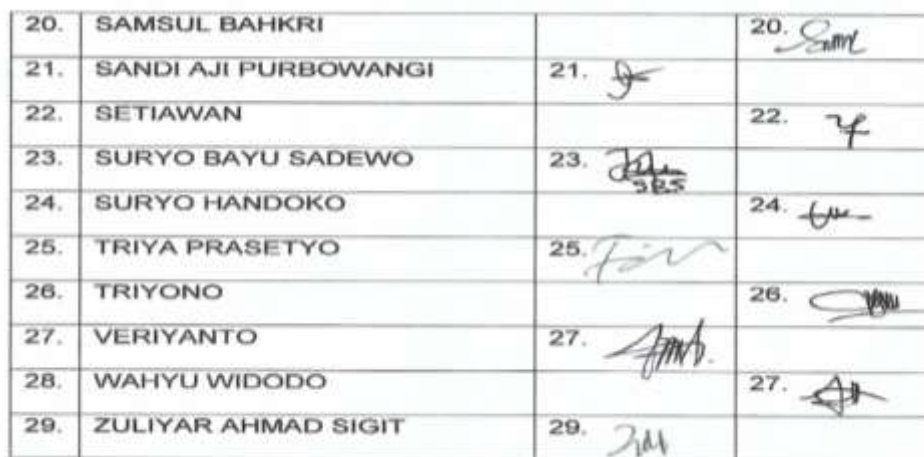 20. SAMSUL BAHKRI 20.
21. SANDI AJI PURBOWANGI 21.
22. SETIAWAN 22.
23. SURYO BAYU SADEWO 23. SBS
24. SURYO HANDOKO 24.
25. TRIYA PRASETYO 25.
26. TRIYONO 26.
27. VERIYANTO 27.
28. WAHYU WIDODO 27.
29. ZULIYAR AHMAD SIGIT 29.